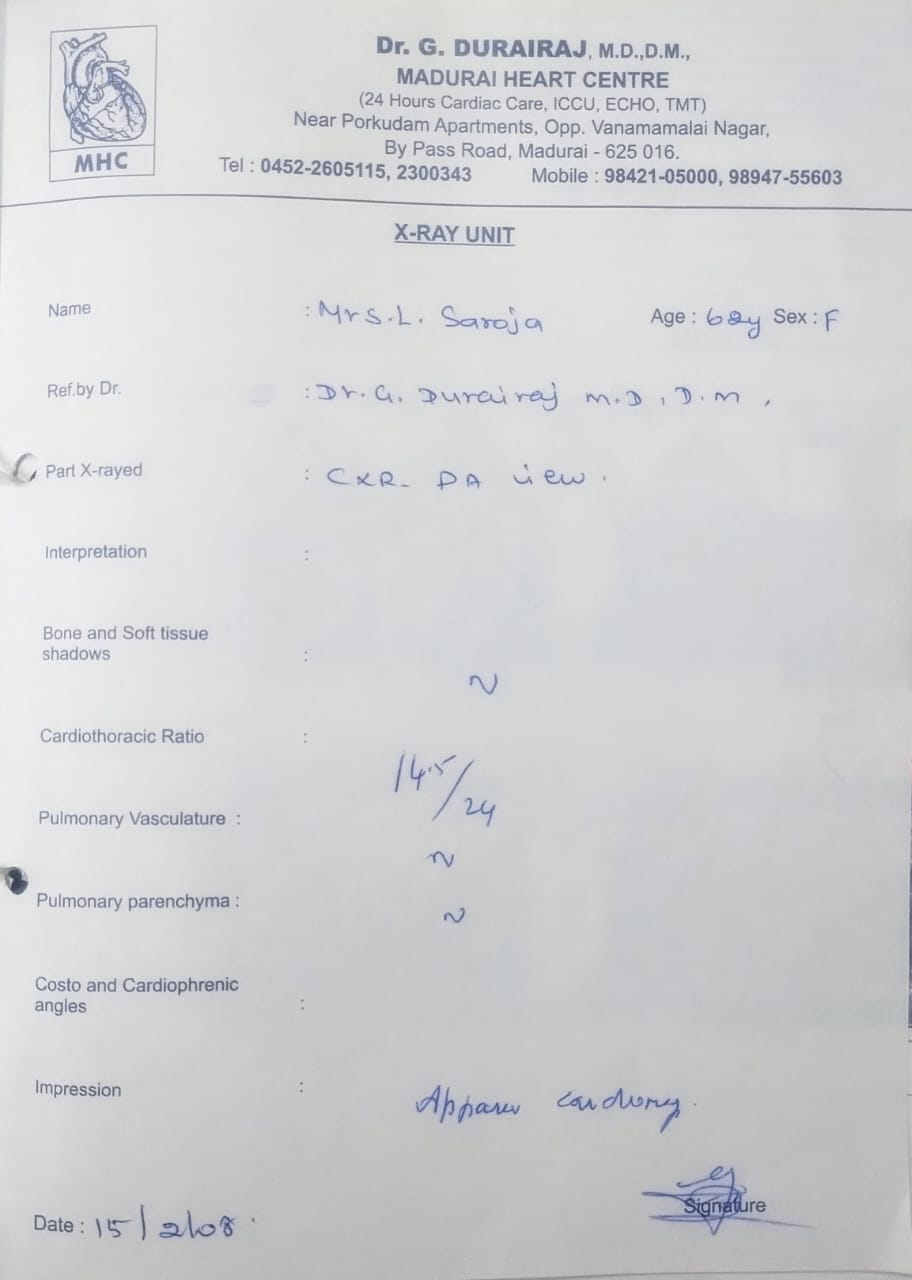 Dr. G. DURAIRAJ, M.D.,D.M.,
MADURAI HEART CENTRE
(24 Hours Cardiac Care, ICCU, ECHO, TMT)
Near Porkudam Apartments, Opp. Vanamamalai Nagar,
By Pass Road, Madurai - 625 016.
Tel : 0452-2605115, 2300343 Mobile : 98421-05000, 98947-55603
MHC
X-RAY UNIT
Name : Mrs. L. Saroja Age : Sex : F
Ref.by Dr. : Dr. G. Durairaj M.D, D.M,
Part X-rayed : CXR- PA view.
Interpretation :
Bone and Soft tissue
shadows :
N
Cardiothoracic Ratio :
14.5/24
Pulmonary Vasculature :
N
Pulmonary parenchyma :
N
Costo and Cardiophrenic
angles :
Impression :
Signature
Date : 15/2/08.